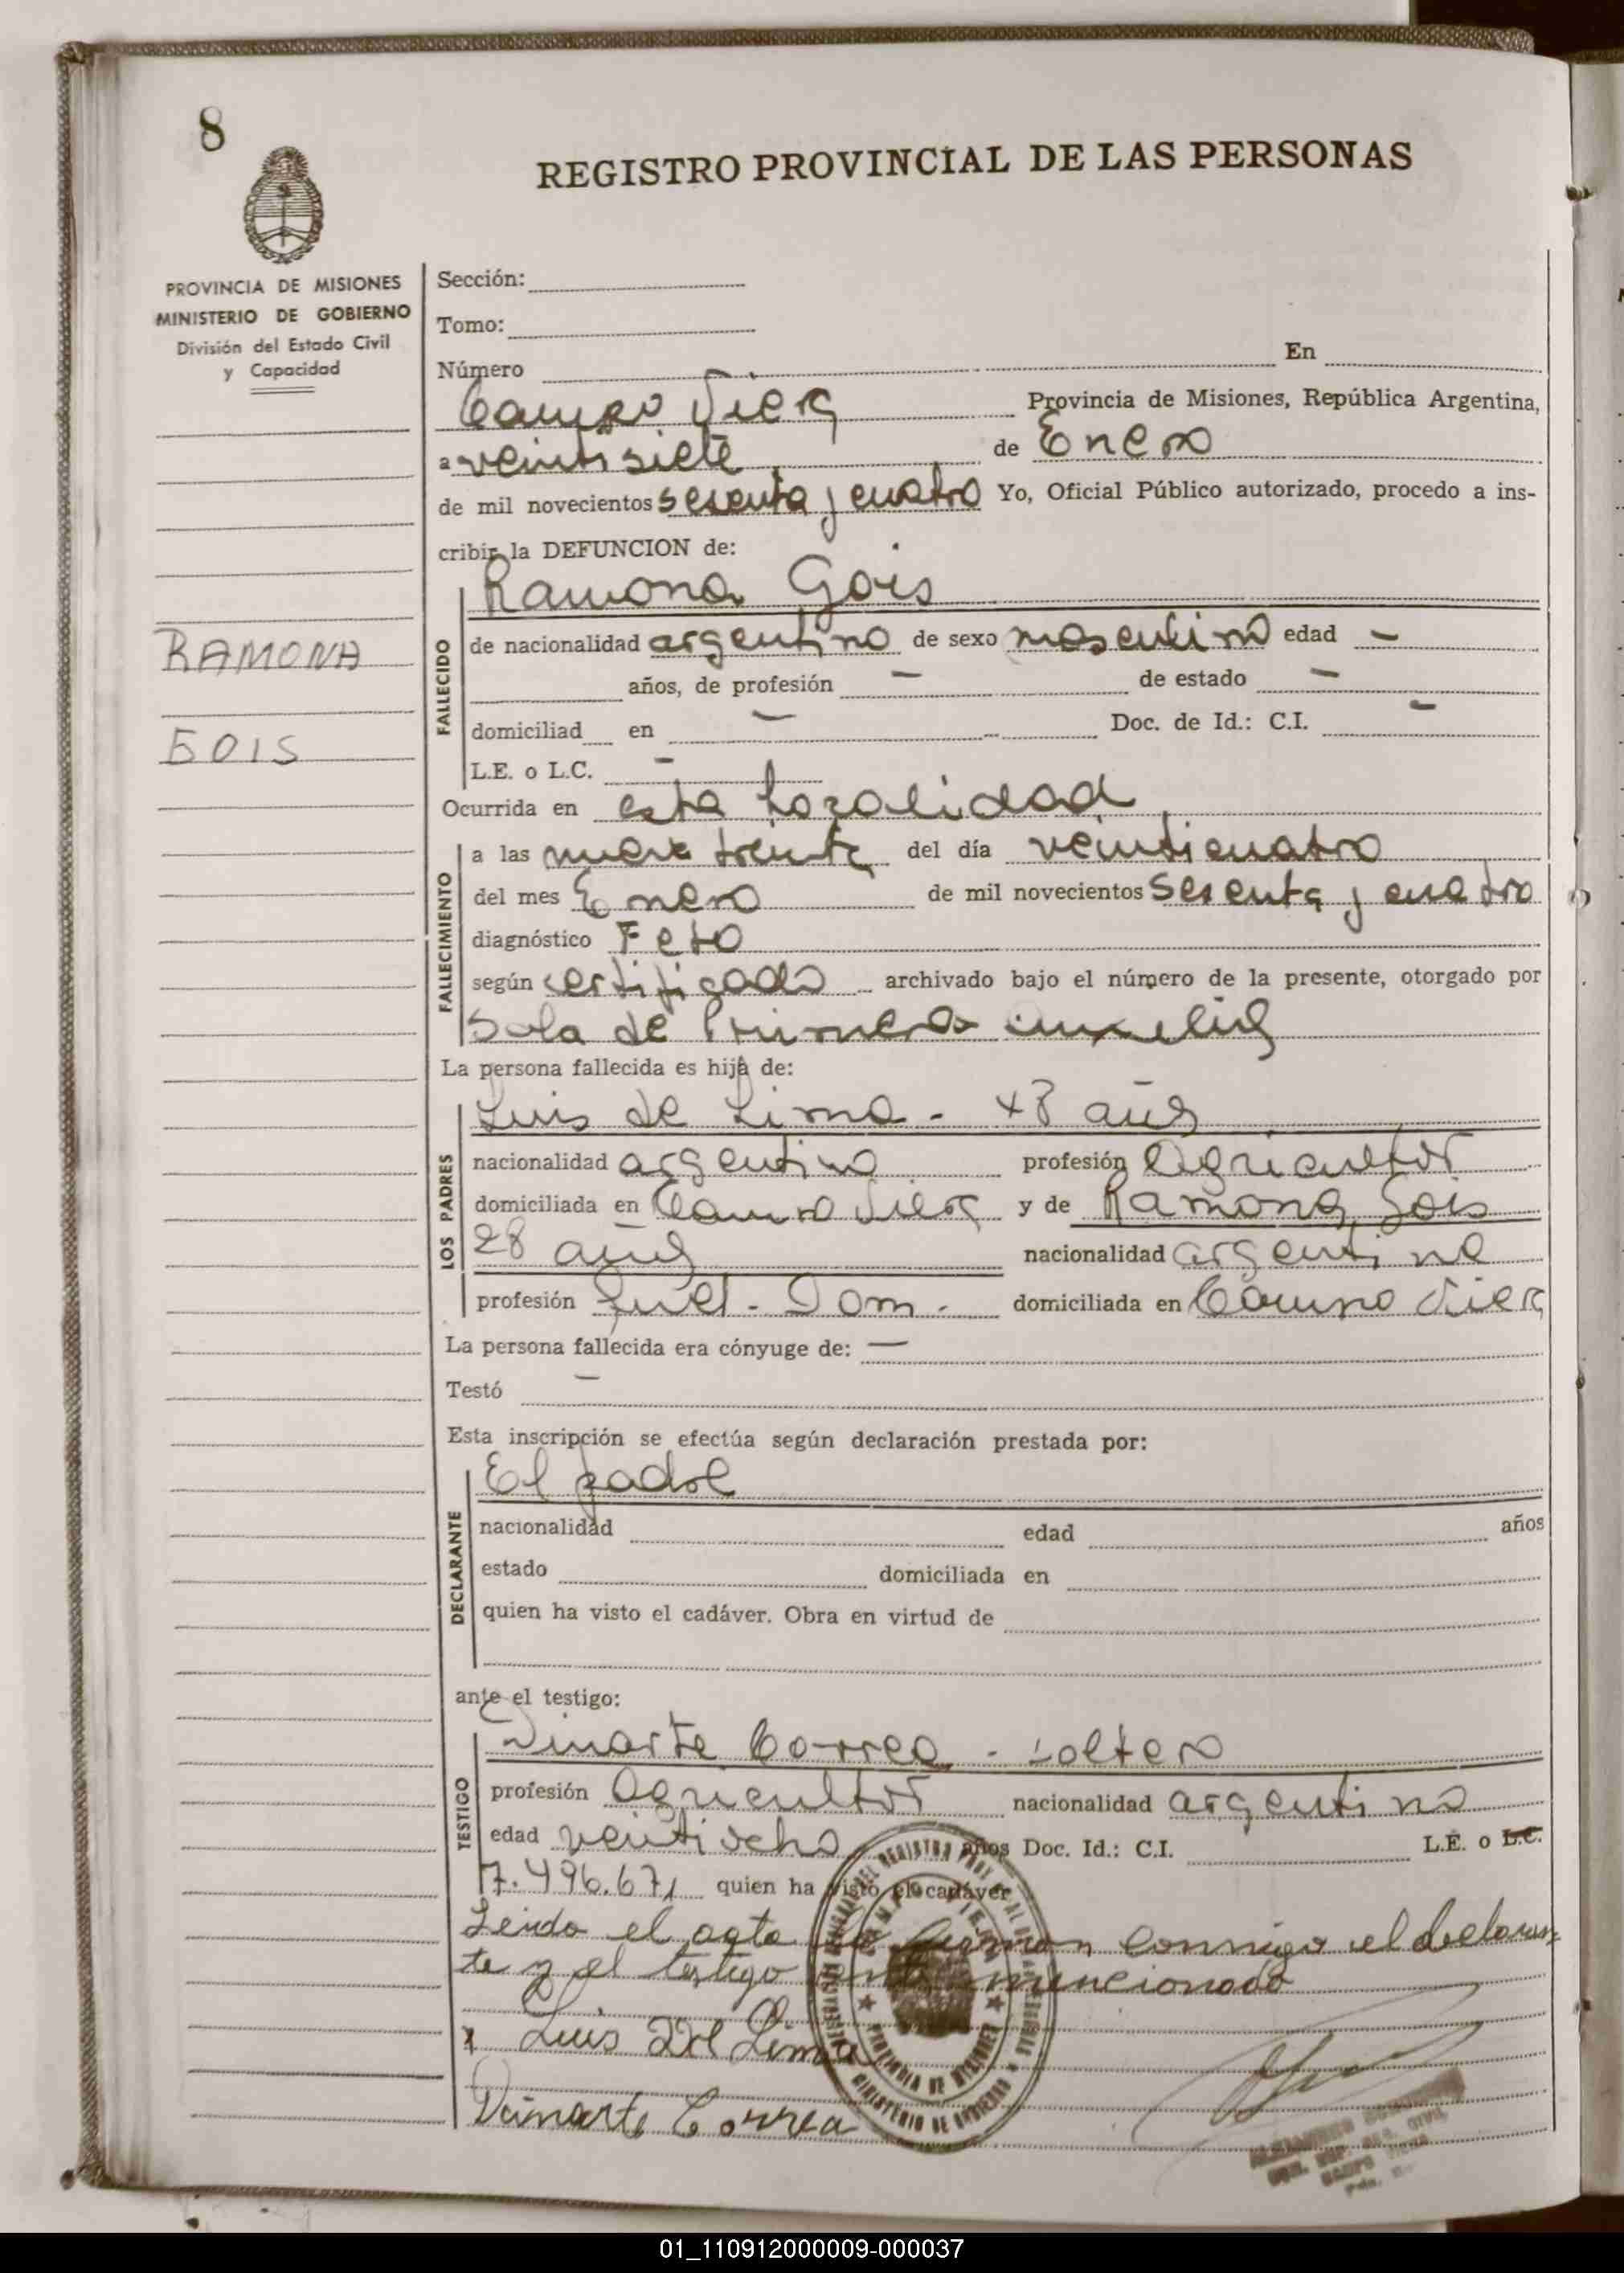 8
REGISTRO PROVINCIAL DE LAS PERSONAS
PROVINCIA DE MISIONES
MINISTERIO DE GOBIERNO
División del Estado Civil
y Capacidad
RAMONA
GOIS
Sección:
Tomo:
Número En
Campo Viera Provincia de Misiones, República Argentina,
a veintisiete de Enero
de mil novecientos sesenta y cuatro Yo, Oficial Público autorizado, procedo a ins-
cribir la DEFUNCION de:
Ramona Gois
FALLECIDO
de nacionalidad argentino de sexo masculino edad —
años, de profesión — de estado —
domiciliad en — Doc. de Id.: C.I. —
L.E. o L.C. —
Ocurrida en esta localidad
FALLECIMIENTO
a las nueve treinta del día veinticuatro
del mes Enero de mil novecientos sesenta y cuatro
diagnóstico Feto
según certificado archivado bajo el número de la presente, otorgado por
Sala de Primeros
La persona fallecida es hija de:
LOS PADRES
Luis de Lima - 48 años
nacionalidad argentino profesión Agricultor
domiciliada en Campo Viera y de Ramona Gois
28 años nacionalidad argentina
profesión Quel. Dom. domiciliada en Campo Viera
La persona fallecida era cónyuge de: —
Testó —
Esta inscripción se efectúa según declaración prestada por:
DECLARANTE
El padre
nacionalidad edad años
estado domiciliada en
quien ha visto el cadáver. Obra en virtud de
ante el testigo:
TESTIGO
Dinarte Correa - soltero
profesión Agricultor nacionalidad argentino
edad ventiocho años Doc. Id.: C.I. L.E. o L.C.
7.496.671 quien ha visto el cadáver
Leido el agta la firman conmigo el declaran-
te y el testigo mencionado
x Luis De Lima
Dinarte Correa
PROVINCIA DE MISIONES
MINISTERIO DE GOBIERNO
01_110912000009-000037